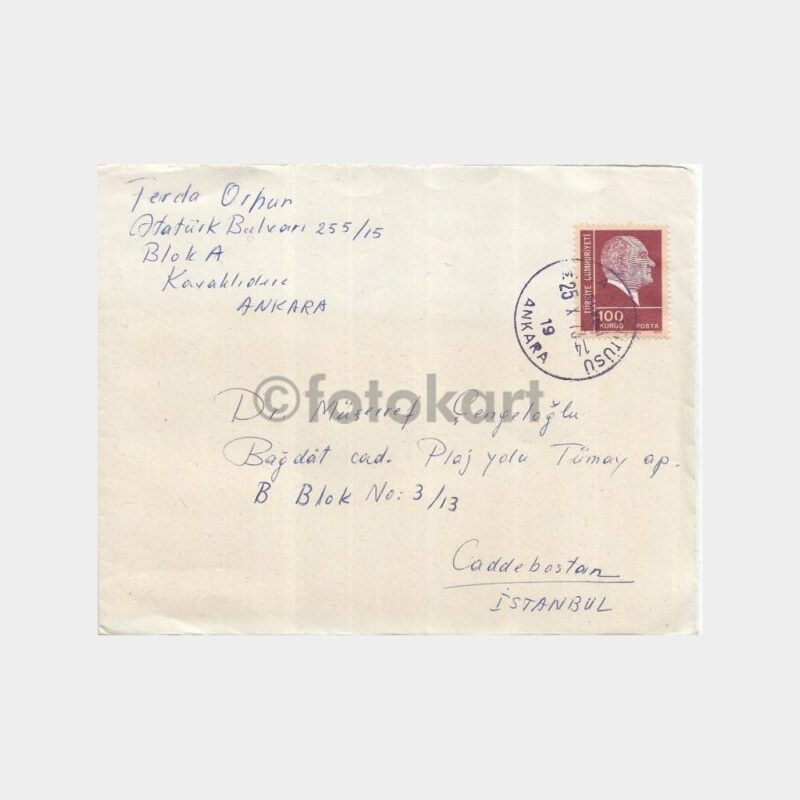 Ferda Orhun
Atatürk Bulvarı 255/15
Blok A
Kavaklıdere
ANKARA
TÜRKİYE CUMHURİYETİ
100
KURUŞ POSTA
25 X
14
19
ANKARA
©fotokart
Dr. Müşerref Çengeloğlu
Bağdat cad. Plaj yolu Tümay ap.
B Blok No: 3/13
Caddebostan
İSTANBUL